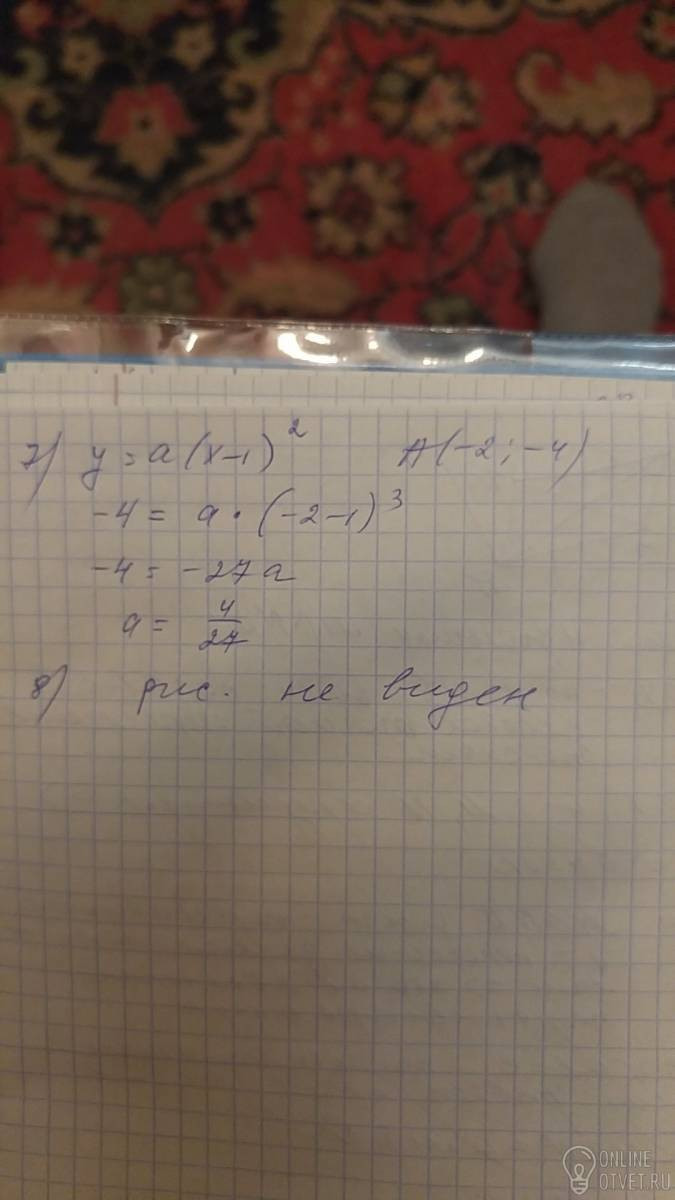 7) y = a(x-1)² A(-2; -4)
-4 = a · (-2-1)³
-4 = -27a
a = 4/27
8) рис. не виден
ONLINE
OTVET.RU